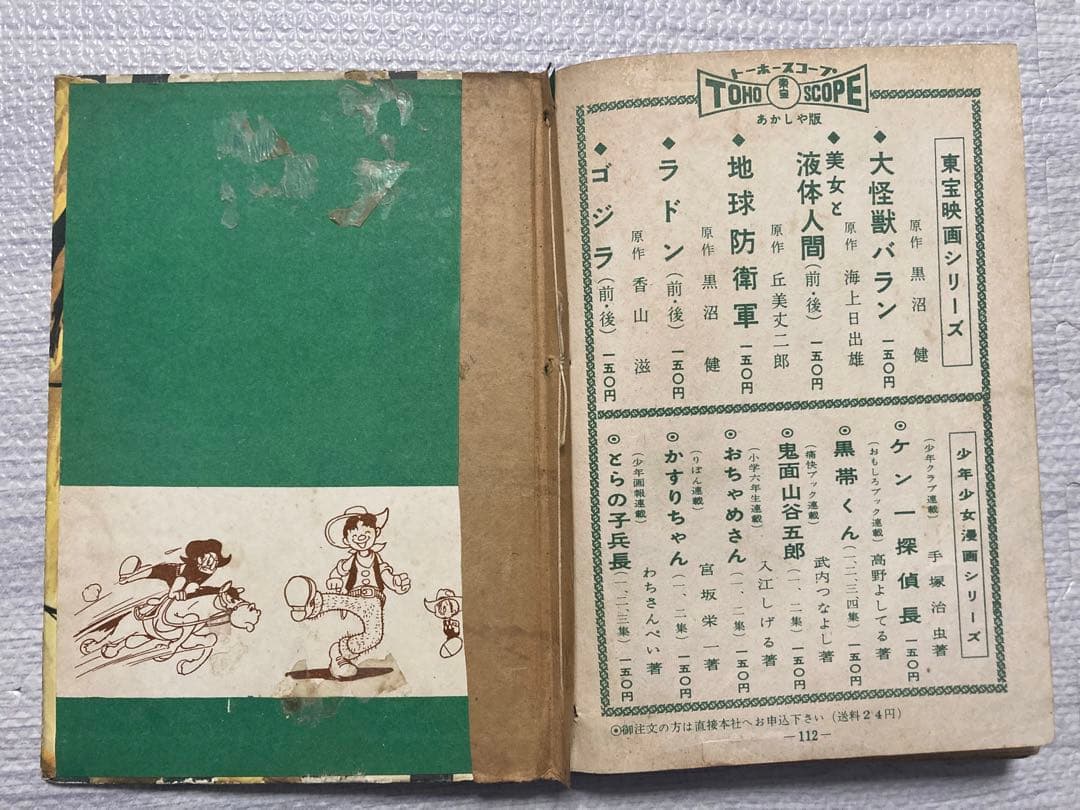 トーホースコープ
TOHO 東宝 SCOPE
あかしや版
東宝映画シリーズ
原作 黒沼 健
◆大怪獣バラン 一五〇円
原作 海上日出雄
◆美女と
液体人間(前・後) 一五〇円
原作 丘美丈二郎
◆地球防衛軍 一五〇円
原作 黒沼 健
◆ラドン(前・後) 一五〇円
原作 香山 滋
◆ゴジラ(前・後) 一五〇円
少年少女漫画シリーズ
(少年クラブ連載) 手塚治虫著
◎ケン一探偵長 一五〇円
(おもしろブック連載) 高野よしてる著
◎黒帯くん(一、二、三、四集) 一五〇円
(痛快ブック連載) 武内つなよし著
◎鬼面山谷五郎(一、二集) 一五〇円
(小学六年生連載) 入江しげる著
◎おちゃめさん(一、二集) 一五〇円
(りぼん連載) 宮坂栄一著
◎かすりちゃん(一、二集) 一五〇円
(少年画報連載) わちさんぺい著
◎とらの子兵長(一、二、三集) 一五〇円
◎御注文の方は直接本社へお申込下さい(送料24円)
—112—